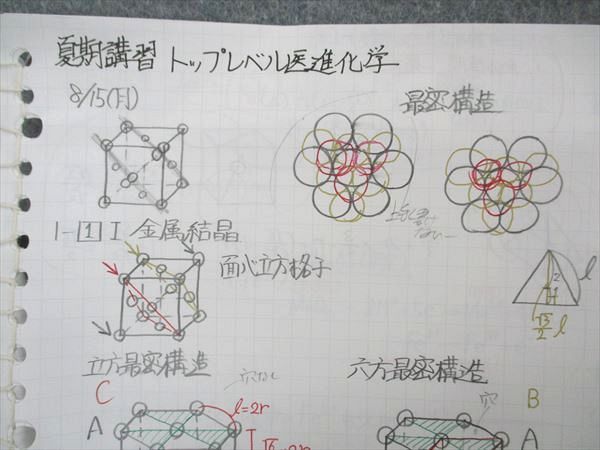 夏期講習 トップレベル医進化学
8/15(月)
最密構造
1-1 I 金属結晶
面心立方格子
l
√3/2 l
立方最密構造
六方最密構造
穴なし
穴
C
l=2r
B
A
A